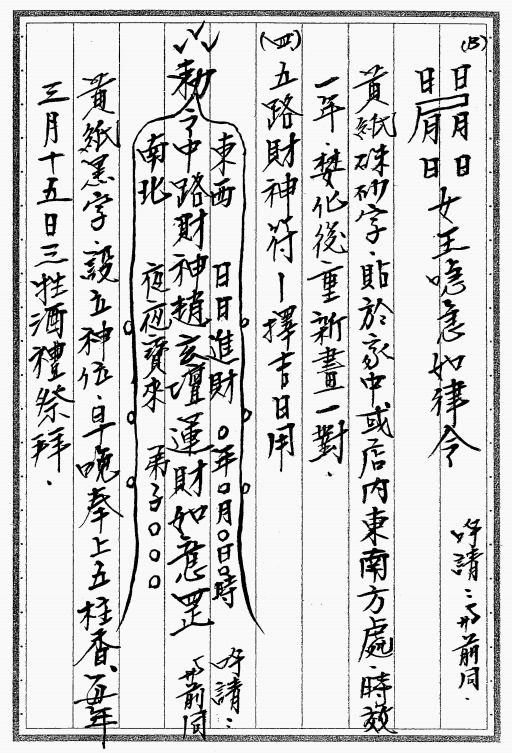 (B)
日月日日月日女王唵急如律令 吽請::與前同.
黃紙硃砂字.貼於家中或店内東南方處.時效
一年.焚化後重新畫一對.
(四)五路財神符—擇吉日用
東西 日日進財 ○年○月○日○時 吽請::與前同
勅令中路財神趙玄壇運財如意罡
南北 夜夜寶來 弟子○○○
黃紙黑字.設立神位.早晚奉上五柱香、每年
三月十五日三牲酒禮祭拜.